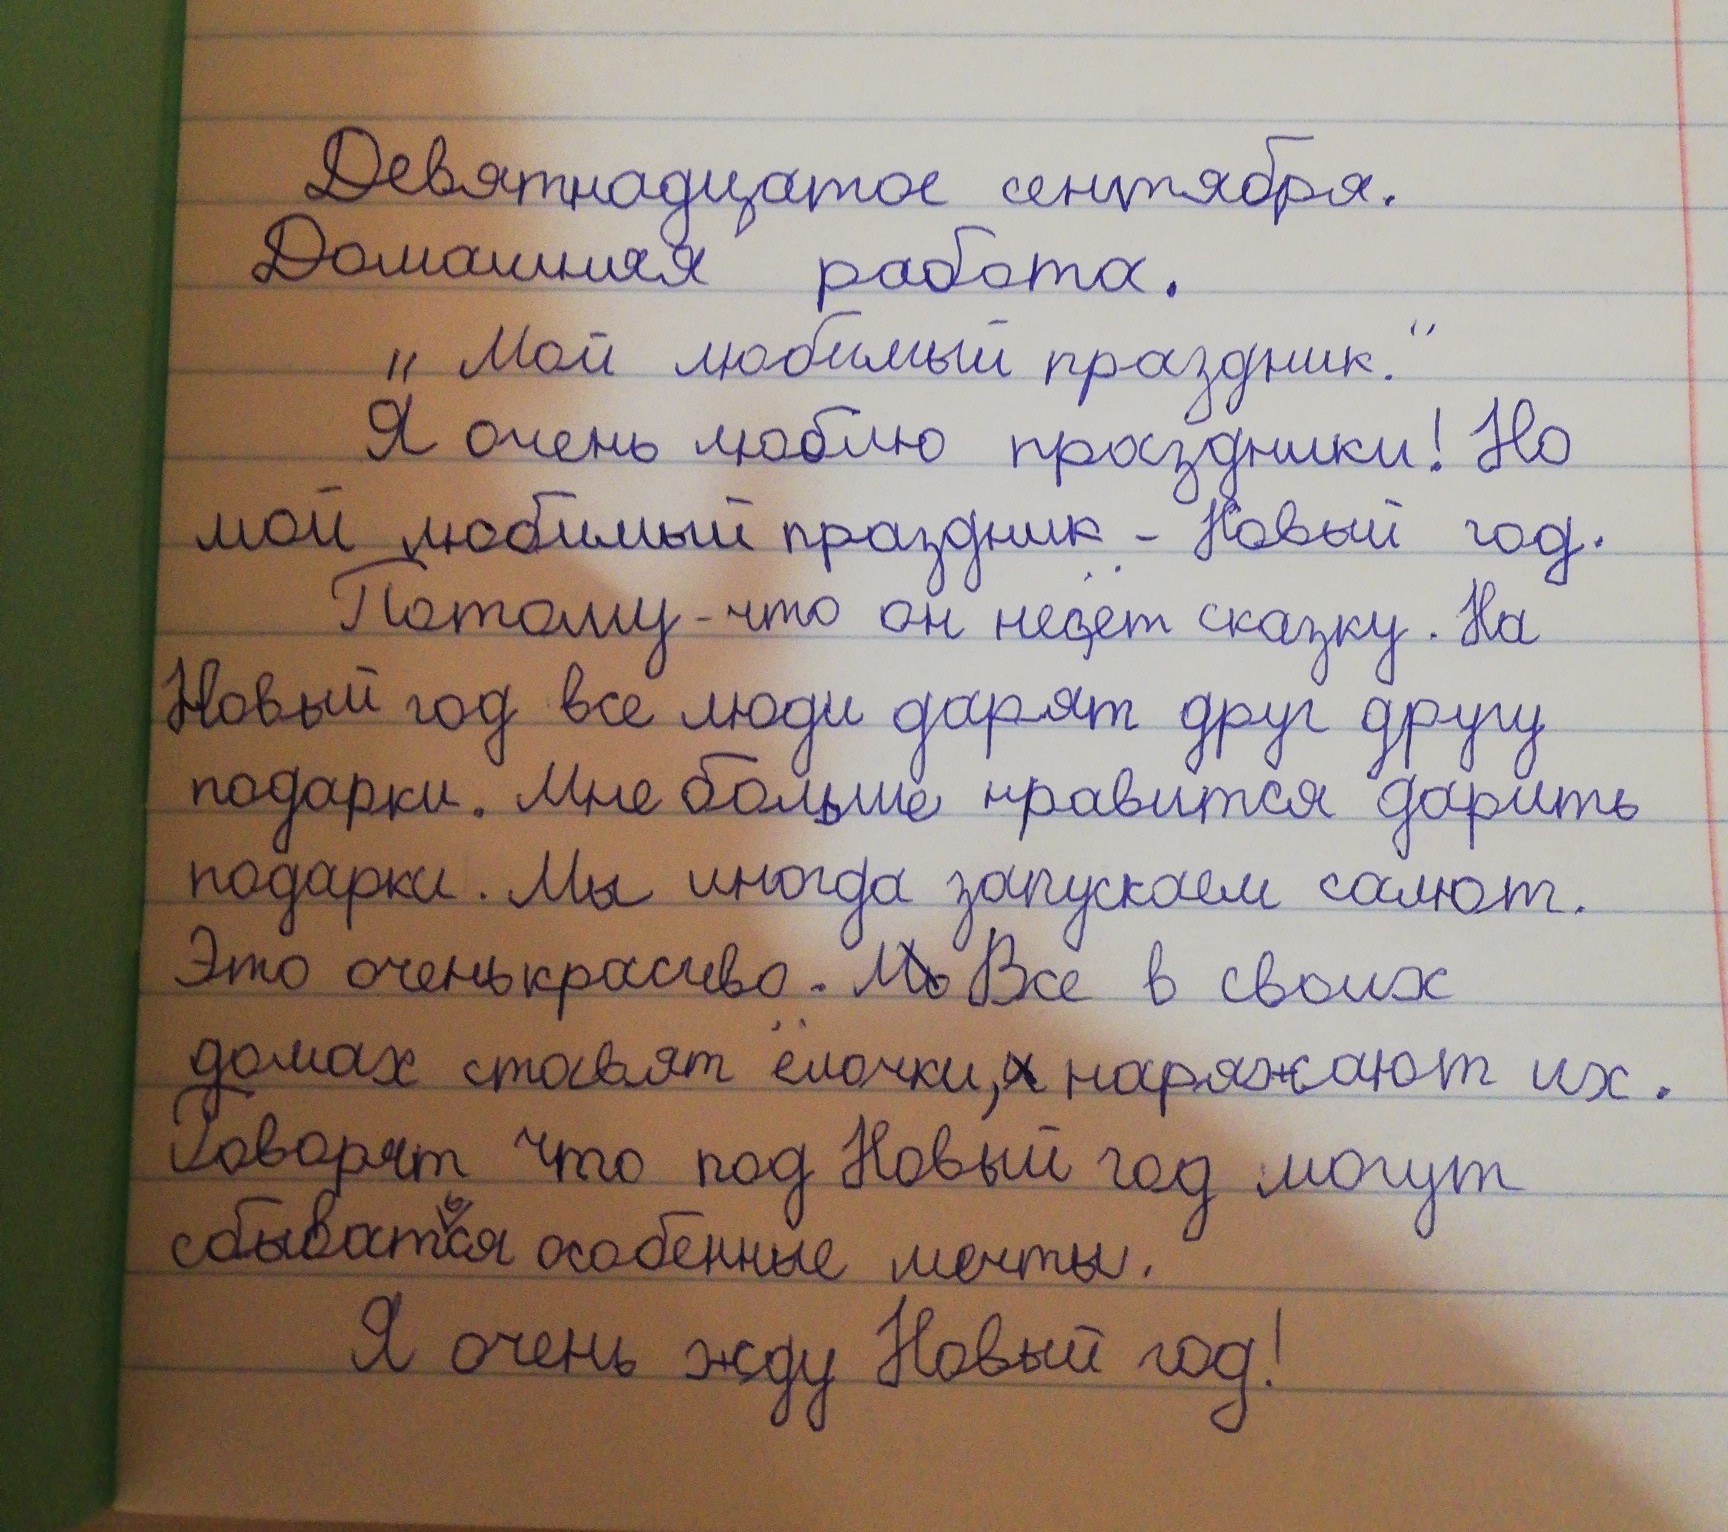 Девятнадцатое сентября.
Домашняя работа.
„ Мой любимый праздник.“
Я очень люблю праздники! Но
мой любимый праздник - Новый год.
Потому-что он несёт сказку. На
Новый год все люди дарят друг другу
подарки. Мне больше нравится дарить
подарки. Мы иногда запускаем салют.
Это очень красиво. Все в своих
домах ставят ёлочки, наряжают их.
Говорят что под Новый год могут
сбываться особенные мечты.
Я очень жду Новый год!